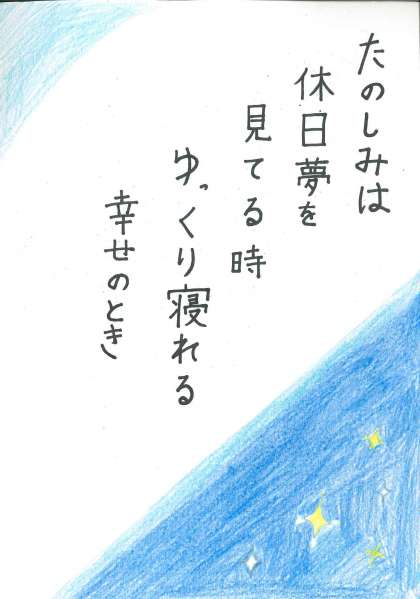 たのしみは
休日夢を
見てる時
ゆっくり寝れる
幸せのとき